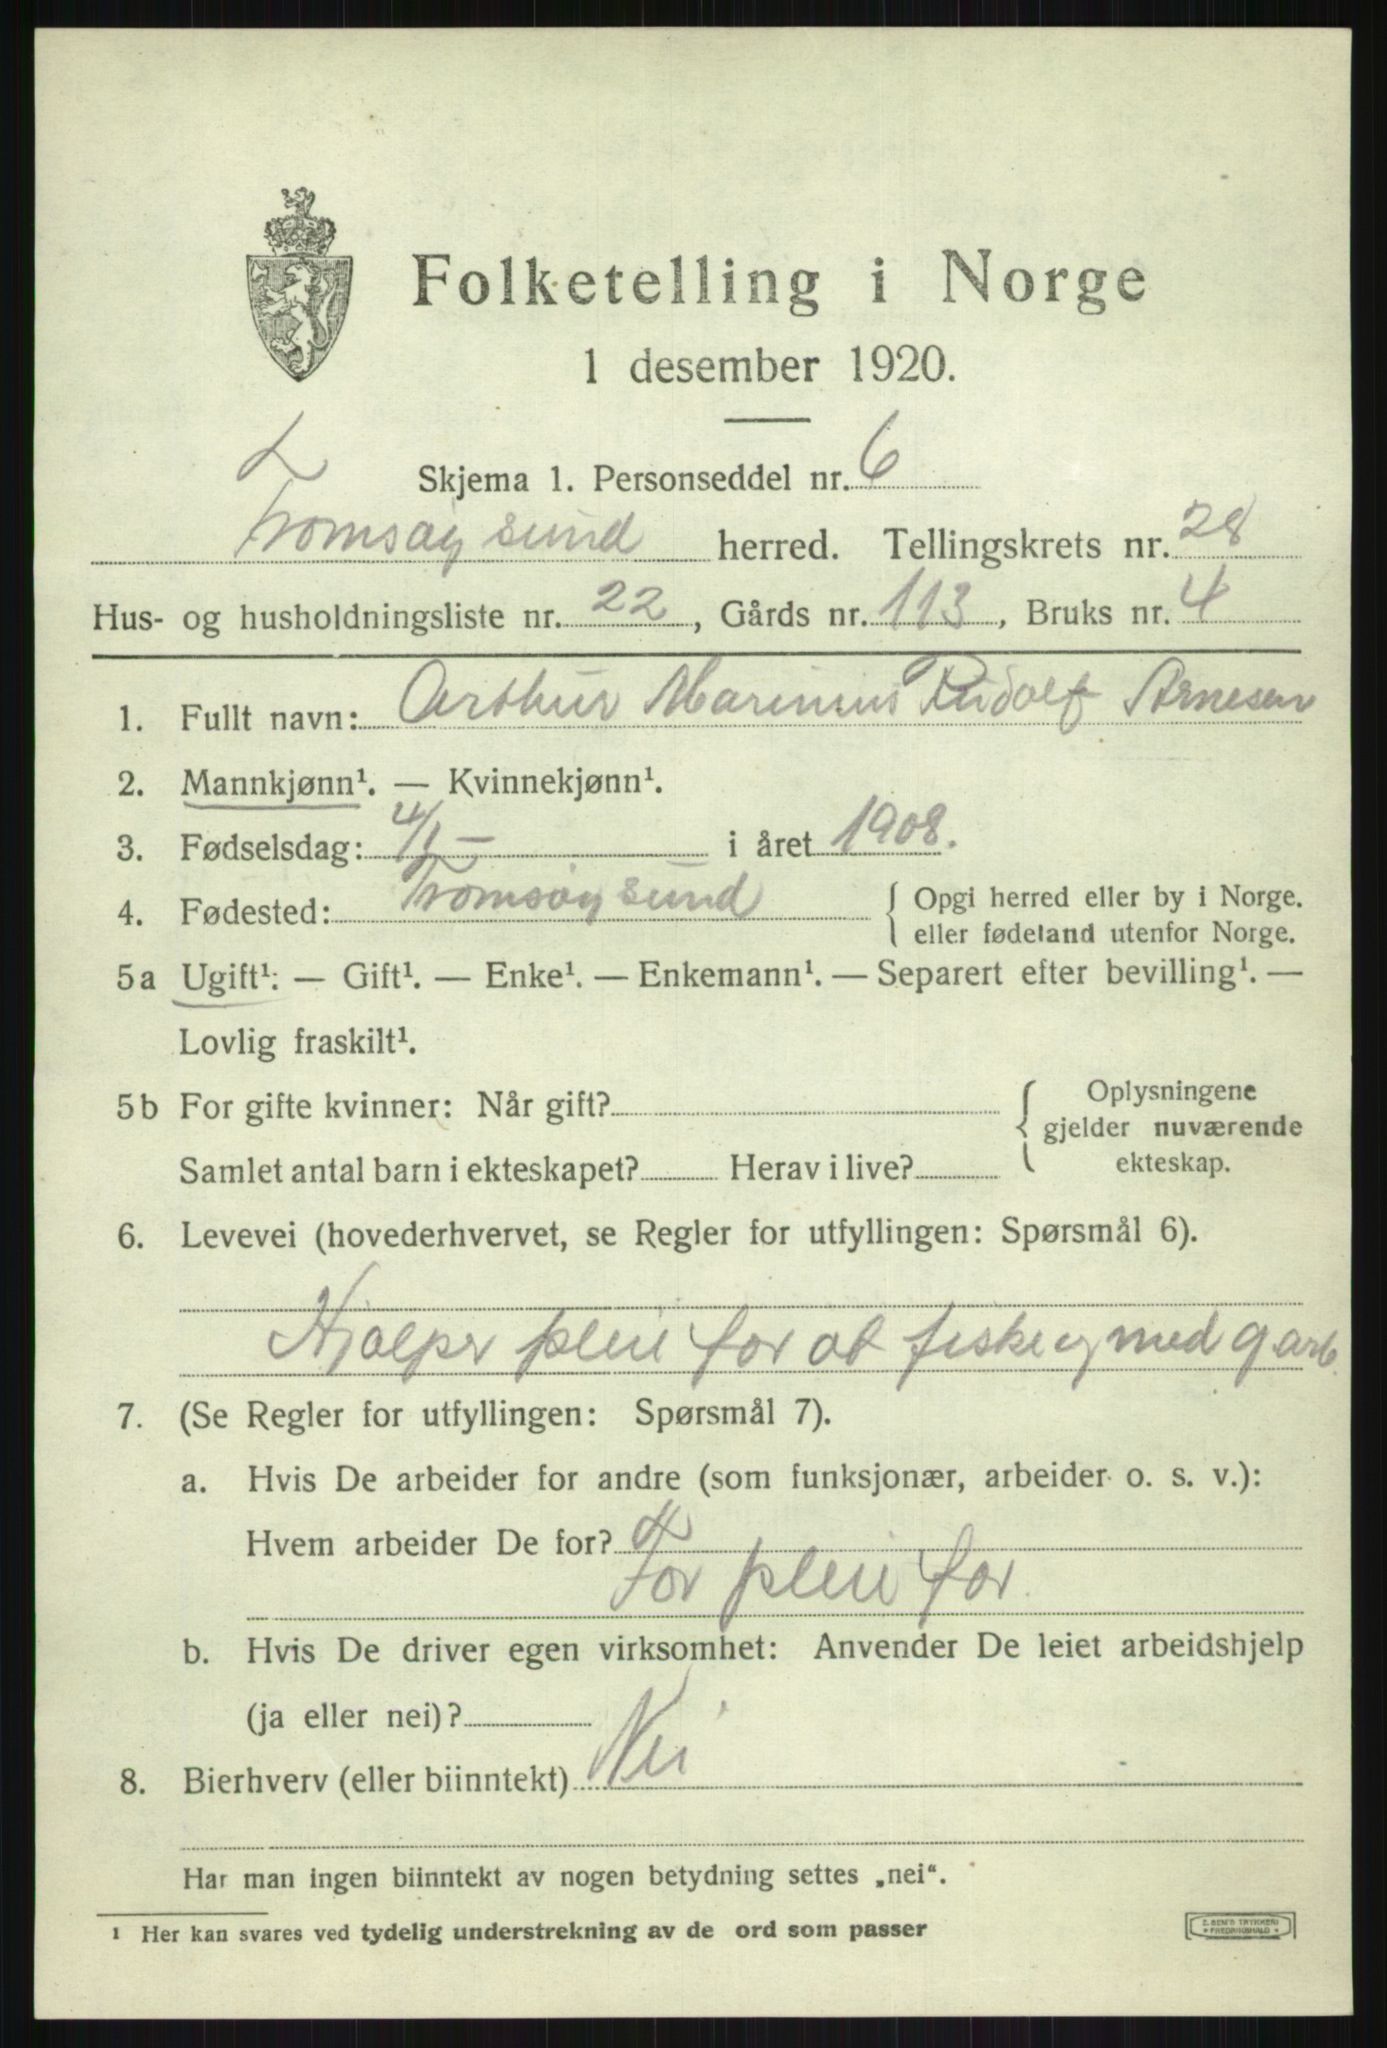 Folketelling i Norge
1 desember 1920.
Skjema 1. Personseddel nr. 6
Tromsøysund herred. Tellingskrets nr. 28
Hus- og husholdningsliste nr. 22, Gårds nr. 113, Bruks nr. 4
1. Fullt navn: Arthur Marinius Rudolf Arnesen
2. Mannkjønn¹. — Kvinnekjønn¹.
3. Fødselsdag: 4/1 — i året 1908.
4. Fødested: Tromsøysund { Opgi herred eller by i Norge.
eller fødeland utenfor Norge.
5a Ugift¹: — Gift¹. — Enke¹. — Enkemann¹. — Separert efter bevilling¹. —
Lovlig fraskilt¹.
5b For gifte kvinner: Når gift? { Oplysningene
gjelder nuværende
Samlet antal barn i ekteskapet? Herav i live? ekteskap.
6. Levevei (hovederhvervet, se Regler for utfyllingen: Spørsmål 6).
Hjælper pleie far at fiske og med garb.
7. (Se Regler for utfyllingen: Spørsmål 7).
a. Hvis De arbeider for andre (som funksjonær, arbeider o. s. v.):
Hvem arbeider De for?
For pleie far
b. Hvis De driver egen virksomhet: Anvender De leiet arbeidshjelp
(ja eller nei)?
8. Bierhverv (eller biinntekt) Nei
Har man ingen biinntekt av nogen betydning settes „nei“.
¹ Her kan svares ved tydelig understrekning av de ord som passer